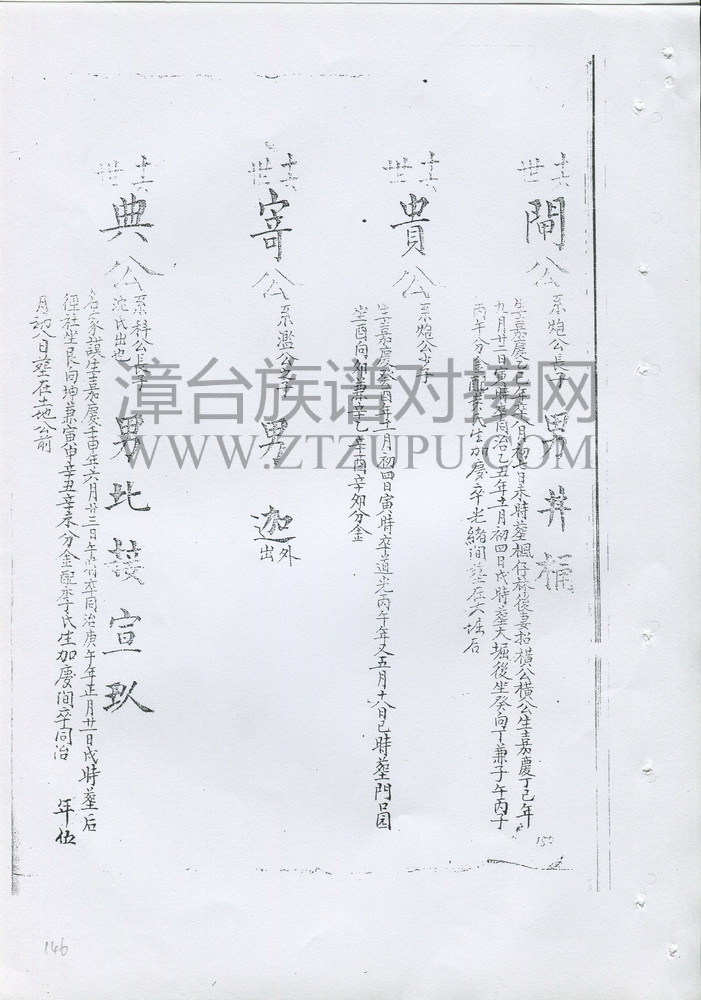 十六世 閙公 系炮公長子 男 井 桶
生嘉慶乙巳年六月初七日未時葬楓仔林後妻招橫公橫公生嘉慶丁巳年
九月廿二日寅時卒同治乙丑年十一月初四日戌時葬大堀後坐癸向丁兼子午丙子
丙午分金配 氏生加慶卒光緒間葬在大堀后
十六世 貴公 系炮公 子
生嘉慶癸酉年十一月初四日寅時卒道光丙午年又五月十八日巳時葬門口园
坐酉向卯兼辛乙 辛酉辛卯分金
十六世 寄公 系濫公 子 男 迦 外出
十六世 典公 系科公長子 沈氏出也 男 比 接 宣 玖
名家謨生嘉慶壬申年六月廿三日午時卒同治庚午年正月廿一日戌時葬后
徑社坐艮向坤兼寅申辛丑辛未分金配李氏生加慶间卒同治 年 位
月初八日葬在土地公前
150
146
漳台族谱对接网
WWW.ZTZUPU.COM